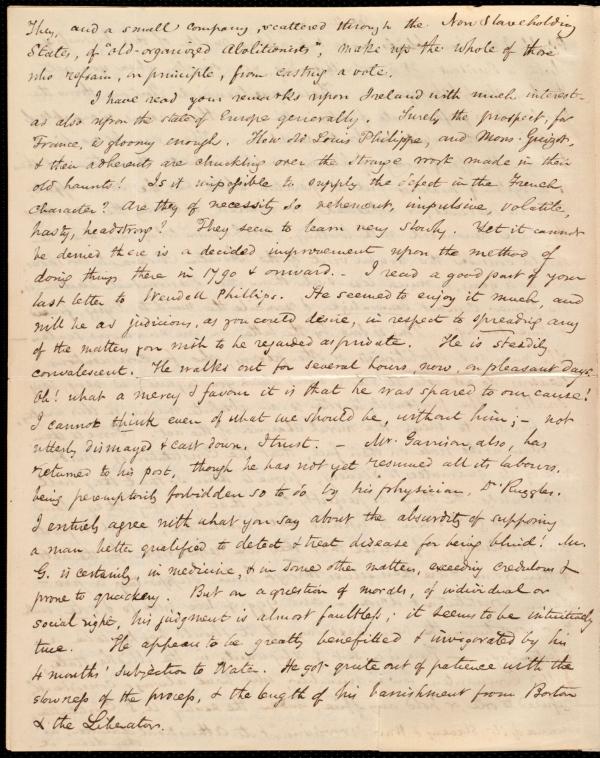 They, and a small company, scattered through the Non Slaveholding
States, of "old-organized Abolitionists", make up the whole of those
who refrain, on principle, from casting a vote.
I have read your remarks upon Ireland with much interest -
as also upon the state of Europe generally. Surely the prospect, for
France, is gloomy enough. How old Louis Philippe, and Mons. Guizot,
& their adherents are chuckling over the strange work made in their
old haunts! Is it impossible to supply the defect in the French
character? Are they of necessity so vehement, impulsive, volatile,
hasty, headstrong? They seem to learn very slowly. Yet it cannot
be denied there is a decided improvement upon the method of
doing things there in 1790 & onward. - I read a good part of your
last letter to Wendell Phillips. He seemed to enjoy it much, and
will be as judicious, as you could desire, in respect to spreading any
of the matters you wish to be regarded as private. He is steadily
convalescent. He walks out for several hours, now, on pleasant days.
Oh! what a mercy & favour it is that he was spared to our cause!
I cannot think even of what we should be, without him; - not
utterly dismayed & cast down, I trust. - Mr. Garrison, also, has
returned to his post, though he has not yet resumed all its labours,
being peremptorily forbidden so to do by his physician, Dr Ruggles.
I entirely agree with what you say about the absurdity of supposing
a man better qualified to detect & treat disease for being blind! Mr.
G. is certainly, in medicine, & in some other matters, exceeding credulous &
prone to quackery. But on a question of morals, of individual or
social right, his judgment is almost faultless; it seems to be intuitively
true. He appears to be greatly benefitted & invigorated by his
4 months' subjection to Water. He got quite out of patience with the
slowness of the process, & the length of his banishment from Boston
& the Liberator.